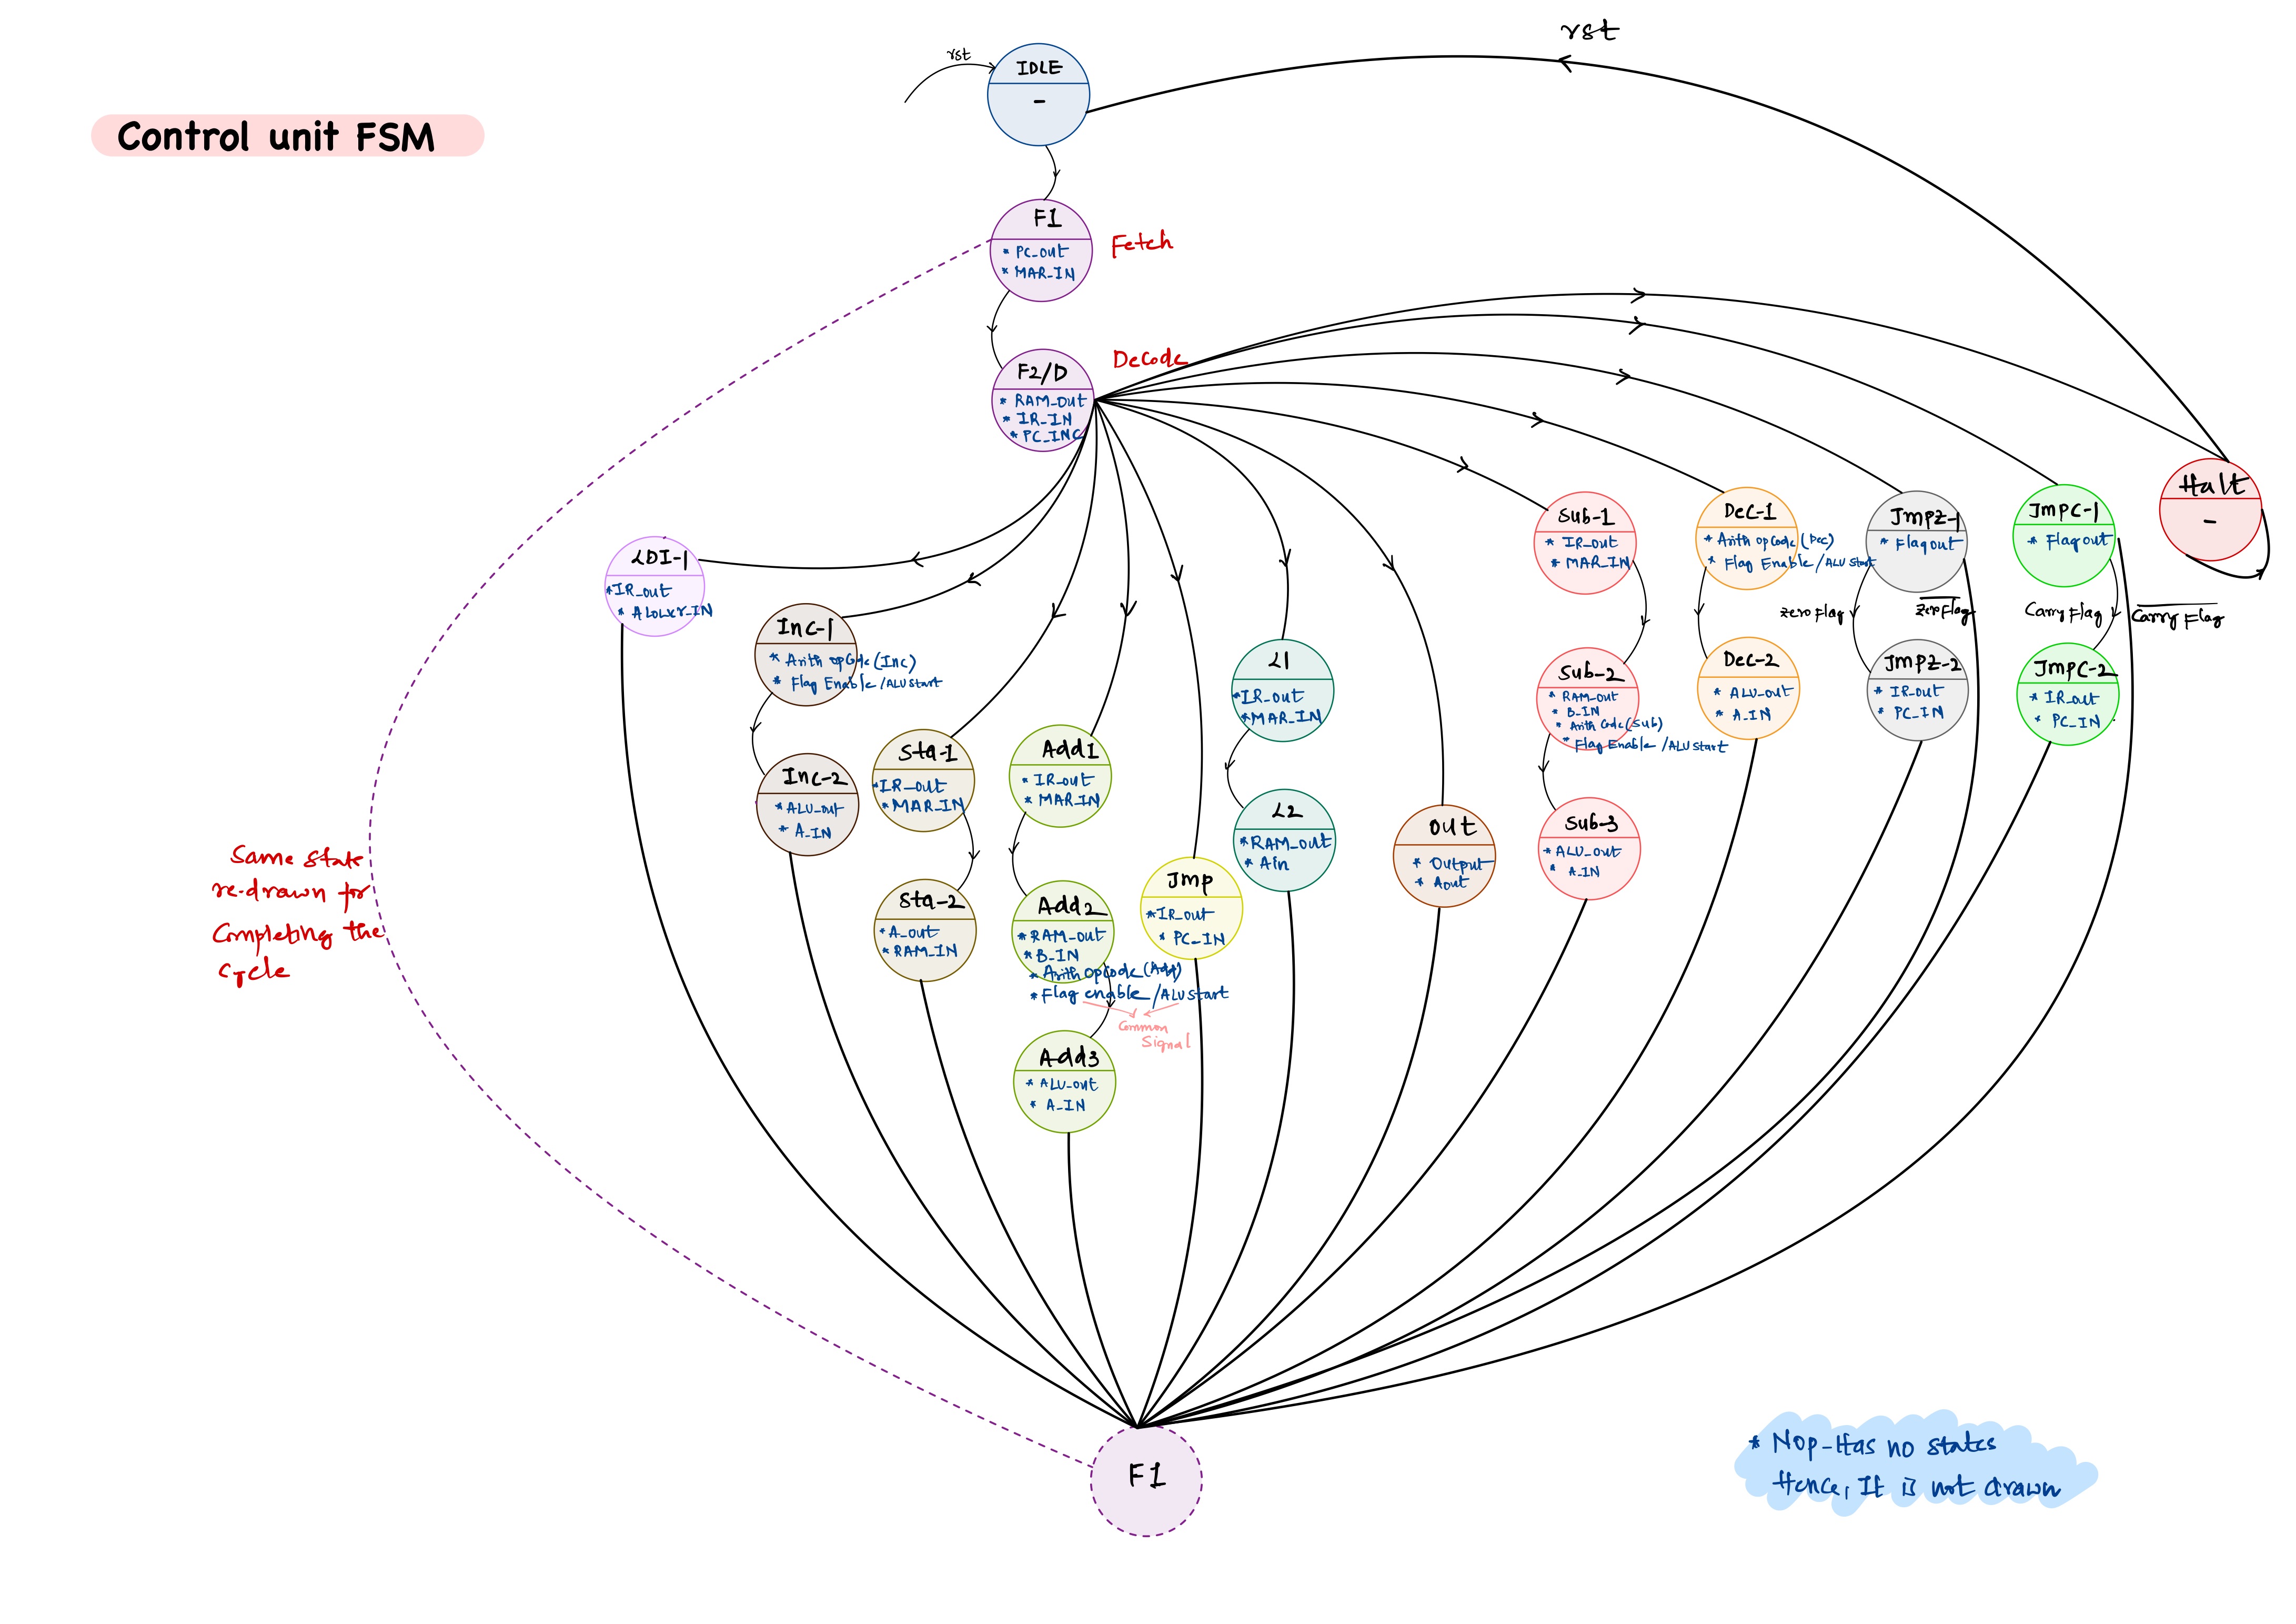 rst
rst
IDLE
-
Control unit FSM
F1
* PC_out
* MAR_IN
Fetch
Decode
F2/D
* RAM_out
* IR_IN
* PC_INC
Halt
-
LDI-1
*IR_out
* ALower_IN
Inc-1
* Arith opcode (Inc)
* Flag Enable /ALU start
Inc-2
*ALU_out
* A_IN
Sta-1
*IR_out
*MAR_IN
Sta-2
*A_out
*RAM_IN
Add1
* IR_out
* MAR_IN
Add2
*RAM_out
*B_IN
* Arith opcode (Add)
*Flag enable /ALU start
Common
Signal
Add3
* ALU_out
* A_IN
Jmp
*IR_out
* PC_IN
L1
*IR_out
*MAR_IN
L2
*RAM_out
* Ain
Out
* Output
* Aout
Sub-1
* IR_out
* MAR_IN
Sub-2
* RAM_out
* B_IN
* Arith Code (Sub)
* Flag Enable /ALU start
Sub-3
*ALU_out
* A_IN
Dec-1
* Arith opcode (Dec)
* Flag Enable /ALU start
Dec-2
* ALU_out
* A_IN
JmpZ-1
* Flag out
zero Flag
zero Flag
JmpZ-2
* IR_out
* PC_IN
JmpC-1
* Flag out
Carry Flag
Carry Flag
JmpC-2
* IR_out
* PC_IN
Same state
re-drawn for
Completing the
cycle
F1
* Nop-Has no states
Hence, It is not drawn